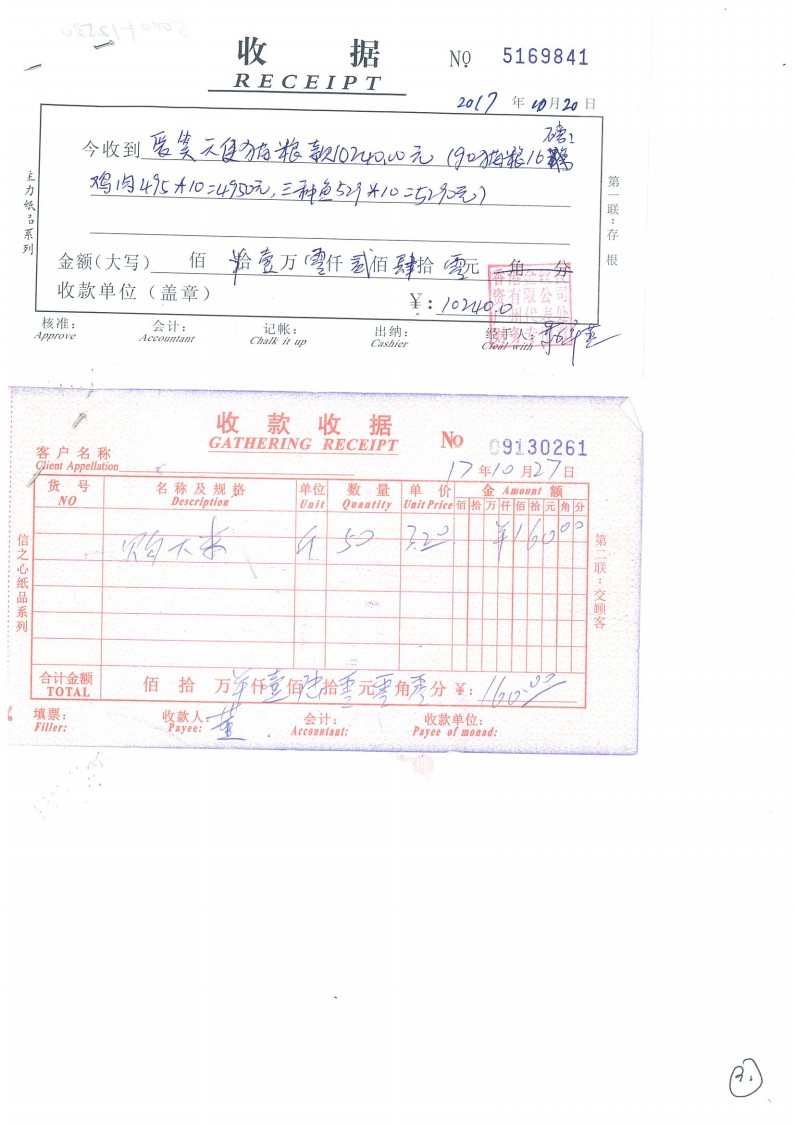 收 据
RECEIPT
№ 5169841
2017 年 10 月 20 日
今收到 猫粮款10240.00元 (90猫粮16
鸡肉495×10=4950元,三种鱼529×10=5290元)
金额(大写) 佰 拾 壹 万 零 仟 贰 佰 肆 拾 零 元 角 分
收款单位(盖章) ¥: 10240.0
资有限公司
核准: 会计: 记帐: 出纳: 经手人:
Approve Accountant Chalk it up Cashier Cleal with
主力纸品系列
第一联:存根
收 款 收 据
GATHERING RECEIPT
No 09130261
客 户 名 称
Client Appellation
17 年 10 月 27 日
货 号 名 称 及 规 格 单位 数 量 单 价 金 Amount 额
NO Description Unit Quantity Unit Price 佰 拾 万 仟 佰 拾 元 角 分
购大米 斤 50 3.20 ¥ 160 00
合计金额 佰 拾 万 仟 壹 佰 陆 拾 零 元 零 角 零 分 ¥: 160.00
TOTAL
填票: 收款人: 董 会计: 收款单位:
Filler: Payee: Accountant: Payee of monad:
信之心纸品系列
第二联:交顾客